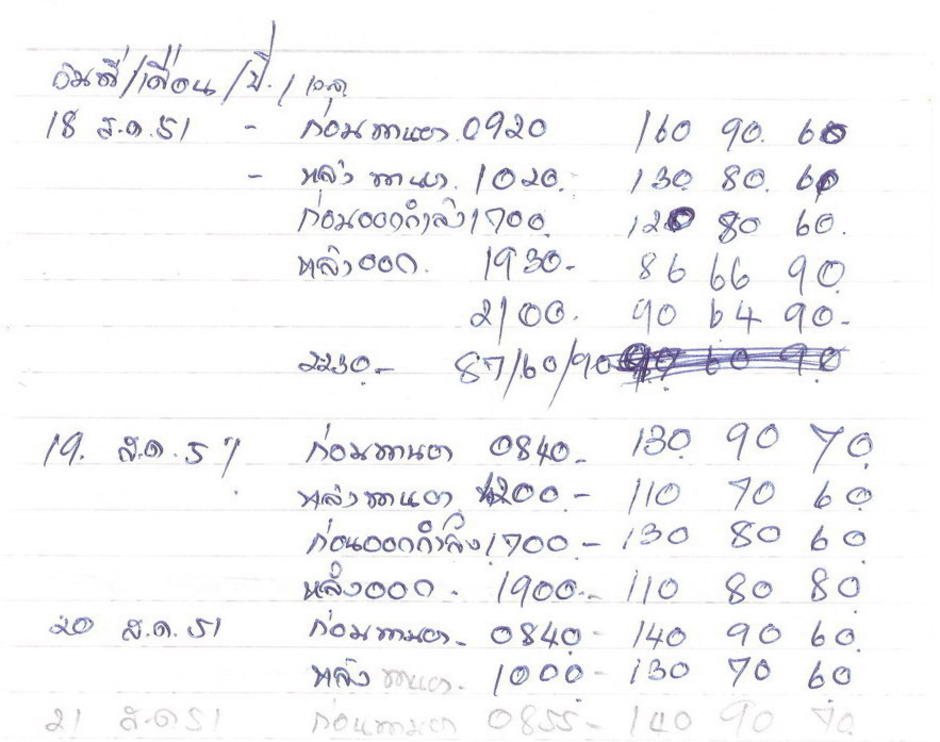 วันที่/เดือน/ปี./เวลา
18 ส.ค. 51 - ก่อนทานยา. 0920 160 90. 60
- หลัง ทานยา. 1020. 130 80. 60
ก่อนออกกำลัง 1700. 120 80 60.
หลังออก. 1930- 86 66 90
2100. 90 64 90-
2230- 87/60/90 90 60 90
19. ส.ค. 51 ก่อนทานยา 0840- 130 90 70
หลังทานยา 1200- 110 70 60
ก่อนออกกำลัง 1700- 130 80 60
หลังออก. 1900- 110 80 80
20 ส.ค. 51 ก่อนทานยา- 0840- 140 90 60
หลัง ทานยา. 1000- 130 70 60
21 ส.ค 51 ก่อนทานยา 0855- 140 90 70